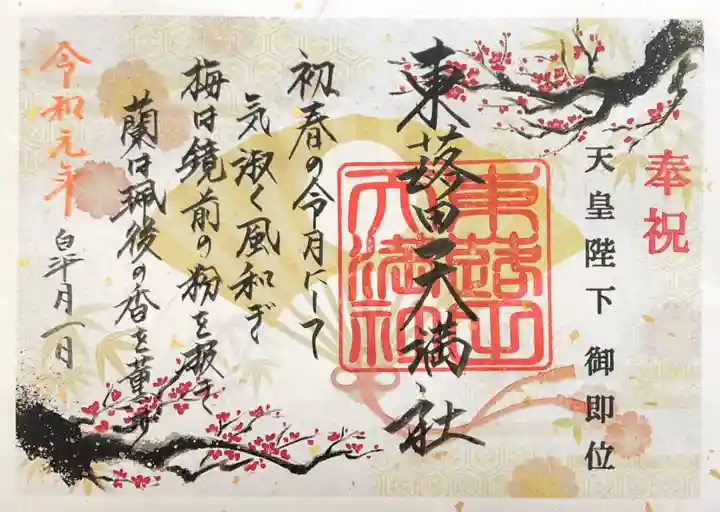 奉祝
天皇陛下 御即位
東落合天満社
初春の令月にして
気淑く風和ぎ
梅は鏡前の粉を披き
蘭は珮後の香を薫ず
令和元年
皐月一日